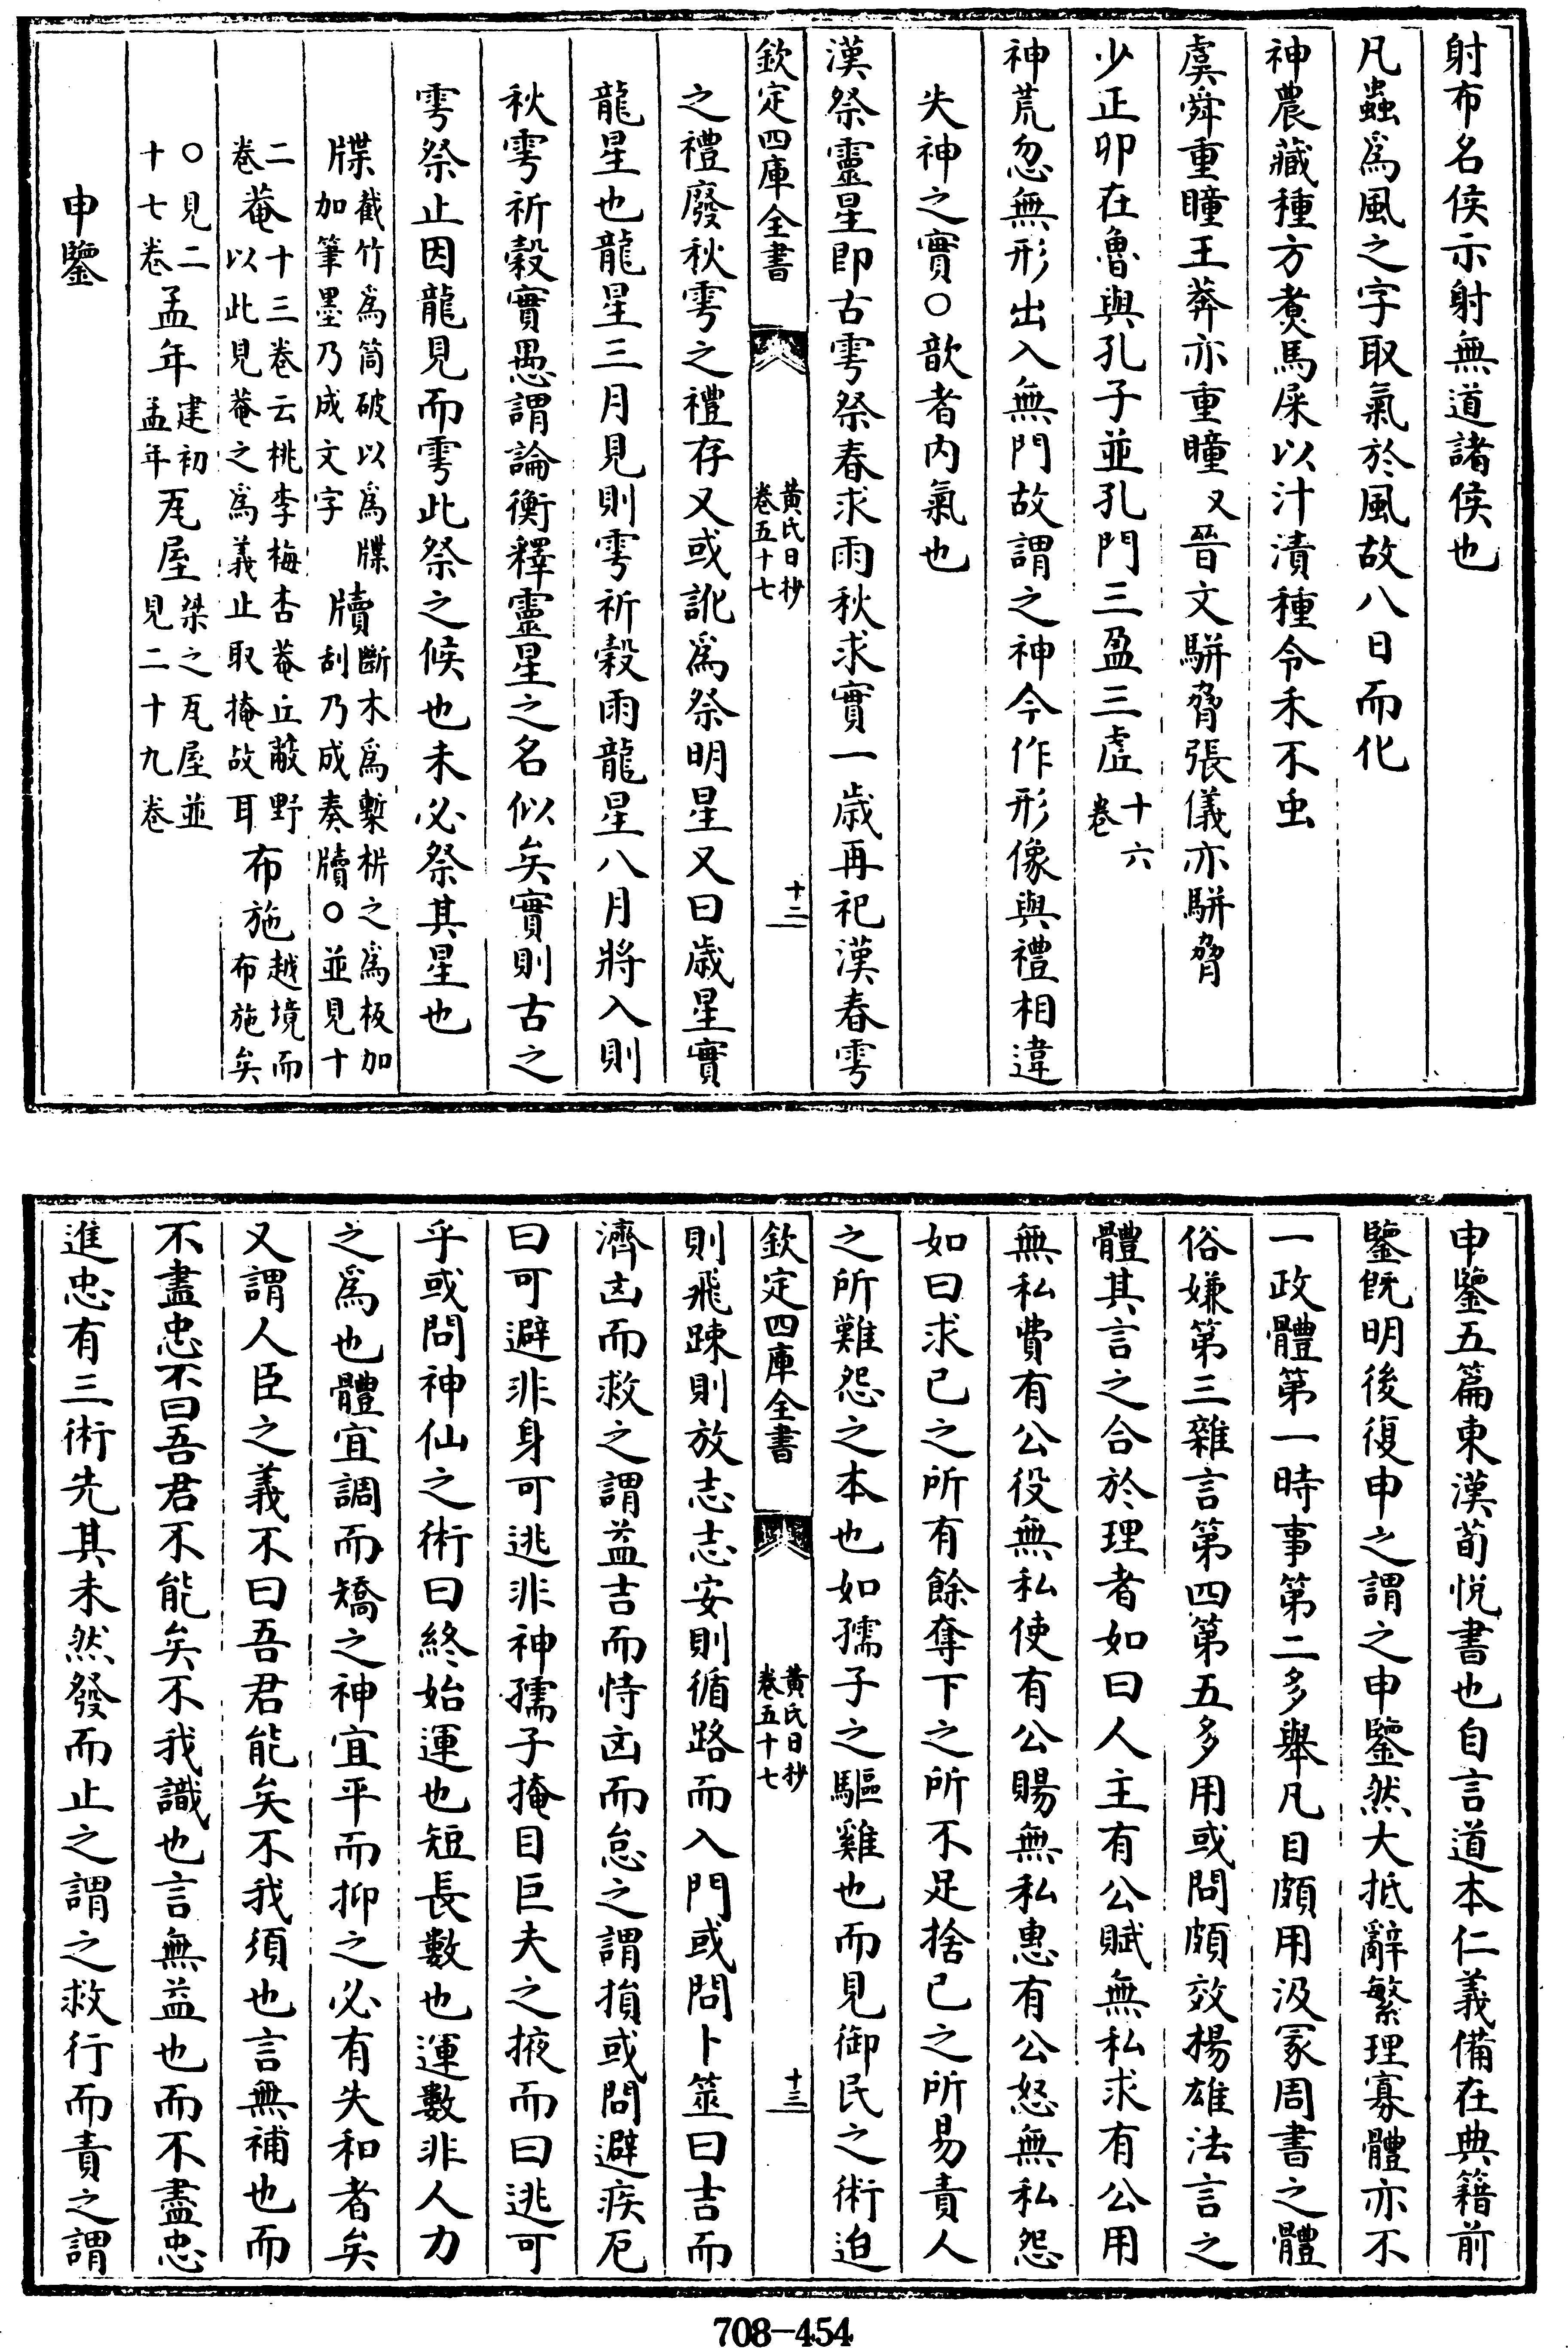 射布名侯示射無道諸侯也
凡蟲爲風之字取氣於風故八日而化
神農藏種方煑馬屎以汁漬種令禾不虫
虞舜重瞳王莽亦重瞳又晉文駢脅張儀亦駢脅
少正卯在魯與孔子並孔門三盈三虛十六卷
神荒忽無形出入無門故謂之神今作形像與禮相違
失神之實○歆者内氣也
漢祭靈星即古雩祭春求雨秋求實一歲再祀漢春雩
欽定四庫全書 黃氏日抄卷五十七 十二
之禮廢秋雩之禮存又或訛爲祭明星又曰歲星實
龍星也龍星三月見則雩祈穀雨龍星八月將入則
秋雩祈穀實愚謂論衡釋靈星之名似矣實則古之
雩祭止因龍見而雩此祭之候也未必祭其星也
牒截竹爲筒破以爲牒加筆墨乃成文字牘斷木爲槧析之爲板加刮乃成奏牘○並見十
二卷菴十三卷云桃李梅杏菴丘蔽野以此見菴之爲義止取掩故耳布施越境而布施矣
○見二十七卷孟年建初孟年瓦屋桀之瓦屋並見二十九卷
申鑒
申鑒五篇東漢荀悅書也自言道本仁義備在典籍前
鑒旣明後復申之謂之申鑒然大抵辭繁理寡體亦不
一政體第一時事第二多舉凡目頗用汲冢周書之體
俗嫌第三雜言第四第五多用或問頗效楊雄法言之
體其言之合於理者如曰人主有公賦無私求有公用
無私費有公役無私使有公賜無私惠有公怒無私怨
如曰求已之所有餘奪下之所不足捨已之所易責人
之所難怨之本也如孺子之驅雞也而見御民之術迫
欽定四庫全書 黃氏日抄卷五十七 十三
則飛踈則放志志安則循路而入門或問卜筮曰吉而
濟凶而救之謂益吉而恃凶而怠之謂損或問避疾厄
曰可避非身可逃非神孺子掩目巨夫之掖而曰逃可
乎或問神仙之術曰終始運也短長數也運數非人力
之爲也體宜調而矯之神宜平而抑之必有失和者矣
又謂人臣之義不曰吾君能矣不我須也言無補也而
不盡忠不曰吾君不能矣不我識也言無益也而不盡忠
進忠有三術先其未然發而止之謂之救行而責之謂
708-454